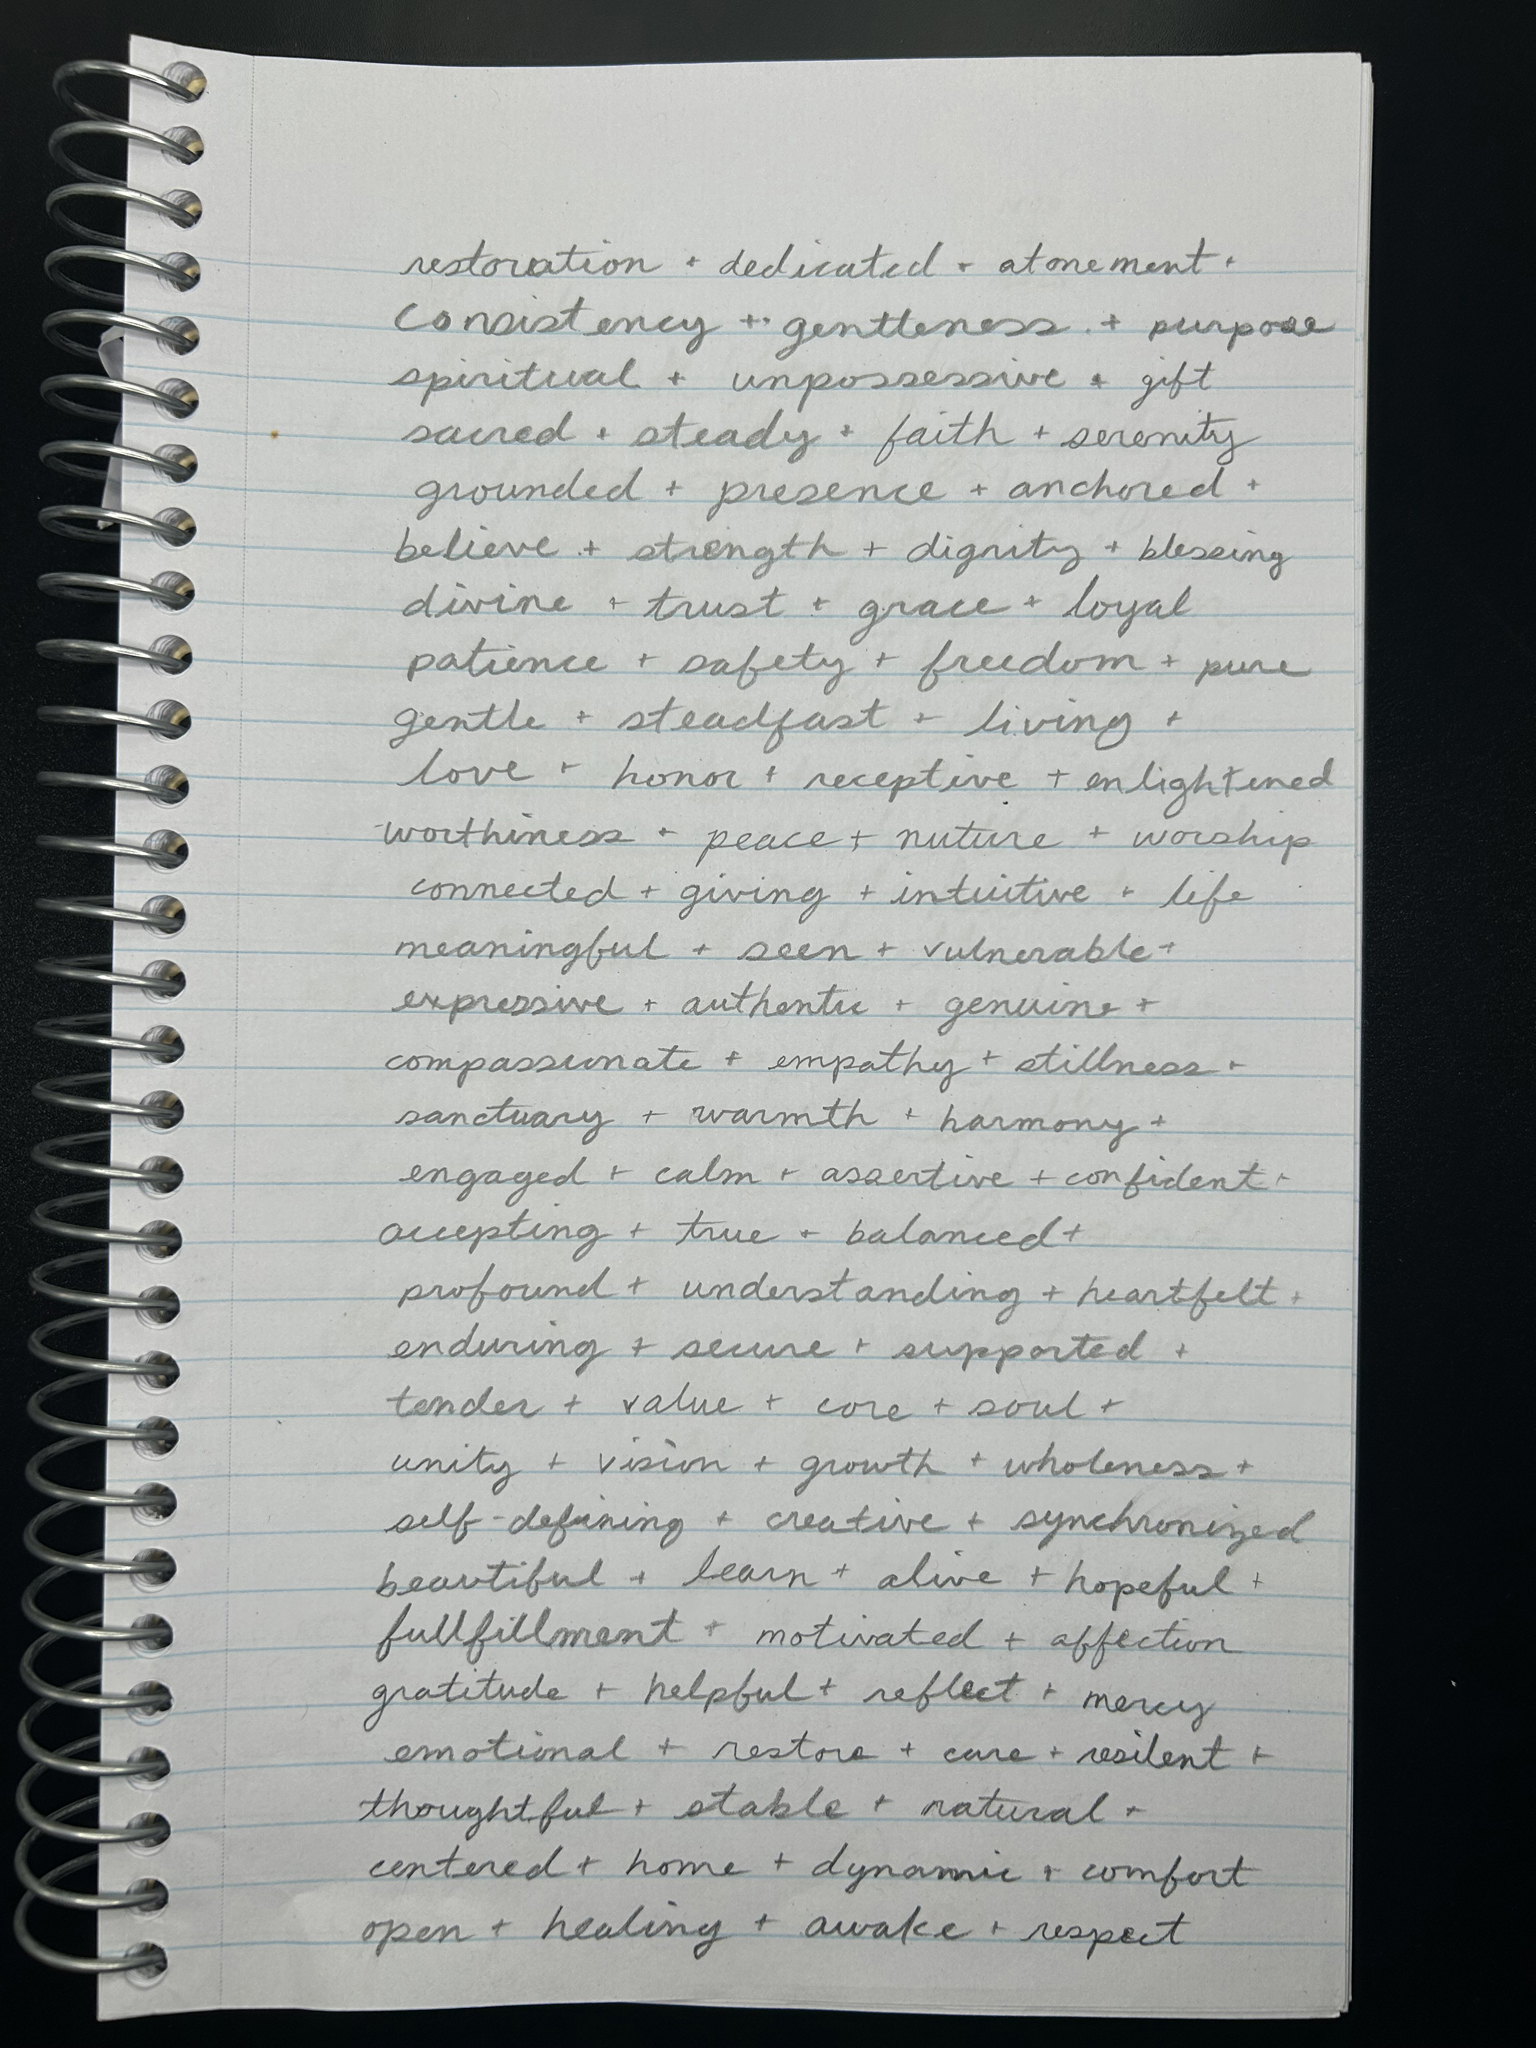 restoration + dedicated + atonement +
Consistency + gentleness + purpose
spiritual + unpossessive + gift
sacred + steady + faith + serenity
grounded + presence + anchored +
believe + strength + dignity + blessing
divine + trust + grace + loyal
patience + safety + freedom + pure
gentle + steadfast + living +
love + honor + receptive + enlightened
worthiness + peace + nuture + worship
connected + giving + intuitive + life
meaningful + seen + vulnerable +
expressive + authentic + genuine +
compassionate + empathy + stillness +
sanctuary + warmth + harmony +
engaged + calm + assertive + confident +
accepting + true + balanced +
profound + understanding + heartfelt +
enduring + secure + supported +
tender + value + core + soul +
unity + vision + growth + wholeness +
self-defining + creative + synchronized
beautiful + learn + alive + hopeful +
fullfillment + motivated + affection
gratitude + helpful + reflect + mercy
emotional + restore + care + resilent +
thoughtful + stable + natural +
centered + home + dynamic + comfort
open + healing + awake + respect